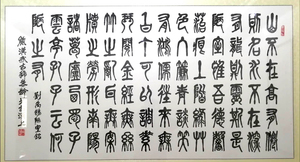 山不在高有僊
則名水不在深
有龍則靈斯是
陋室惟吾德馨
苔痕上階綠艸
色入簾青談笑
有鴻儒往來無
白丁可以調素
琴閱金經無絲
竹之亂耳無案
牘之勞形南陽
諸葛廬西蜀子
雲亭孔子云何
陋之有
劉禹錫陋室銘